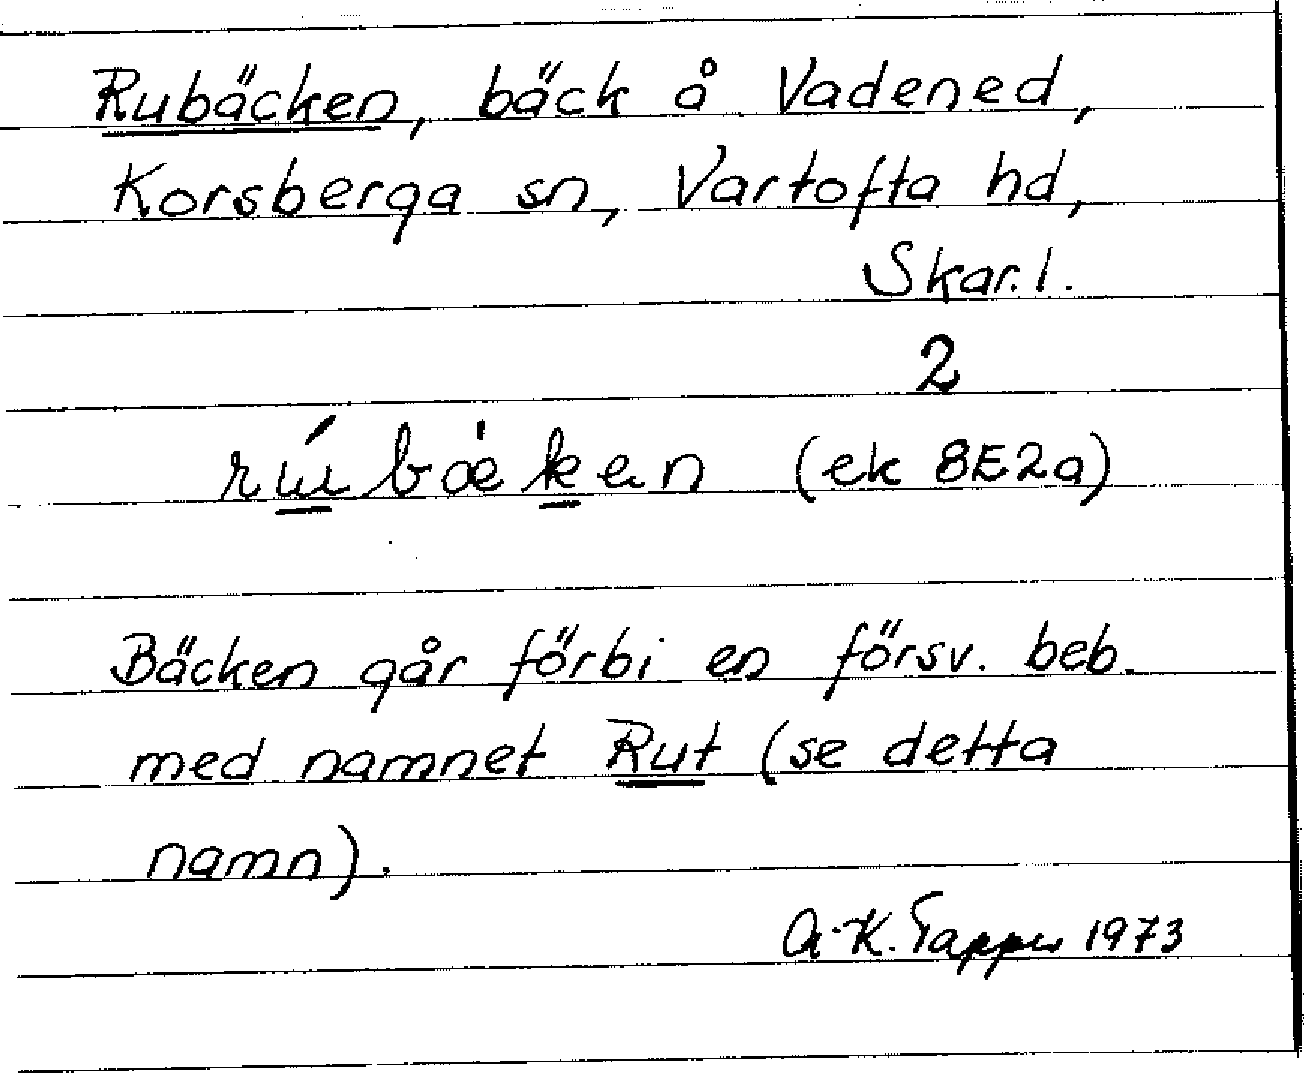 Rubäcken, bäck å Vadened,
Korsberga sn, Vartofta hd,
Skar. l.
2
rɯ́ bæ̀ken (ek 8E2a)
Bäcken går förbi en försv. beb.
med namnet Rut (se detta
namn).
A-K. Tapper 1973